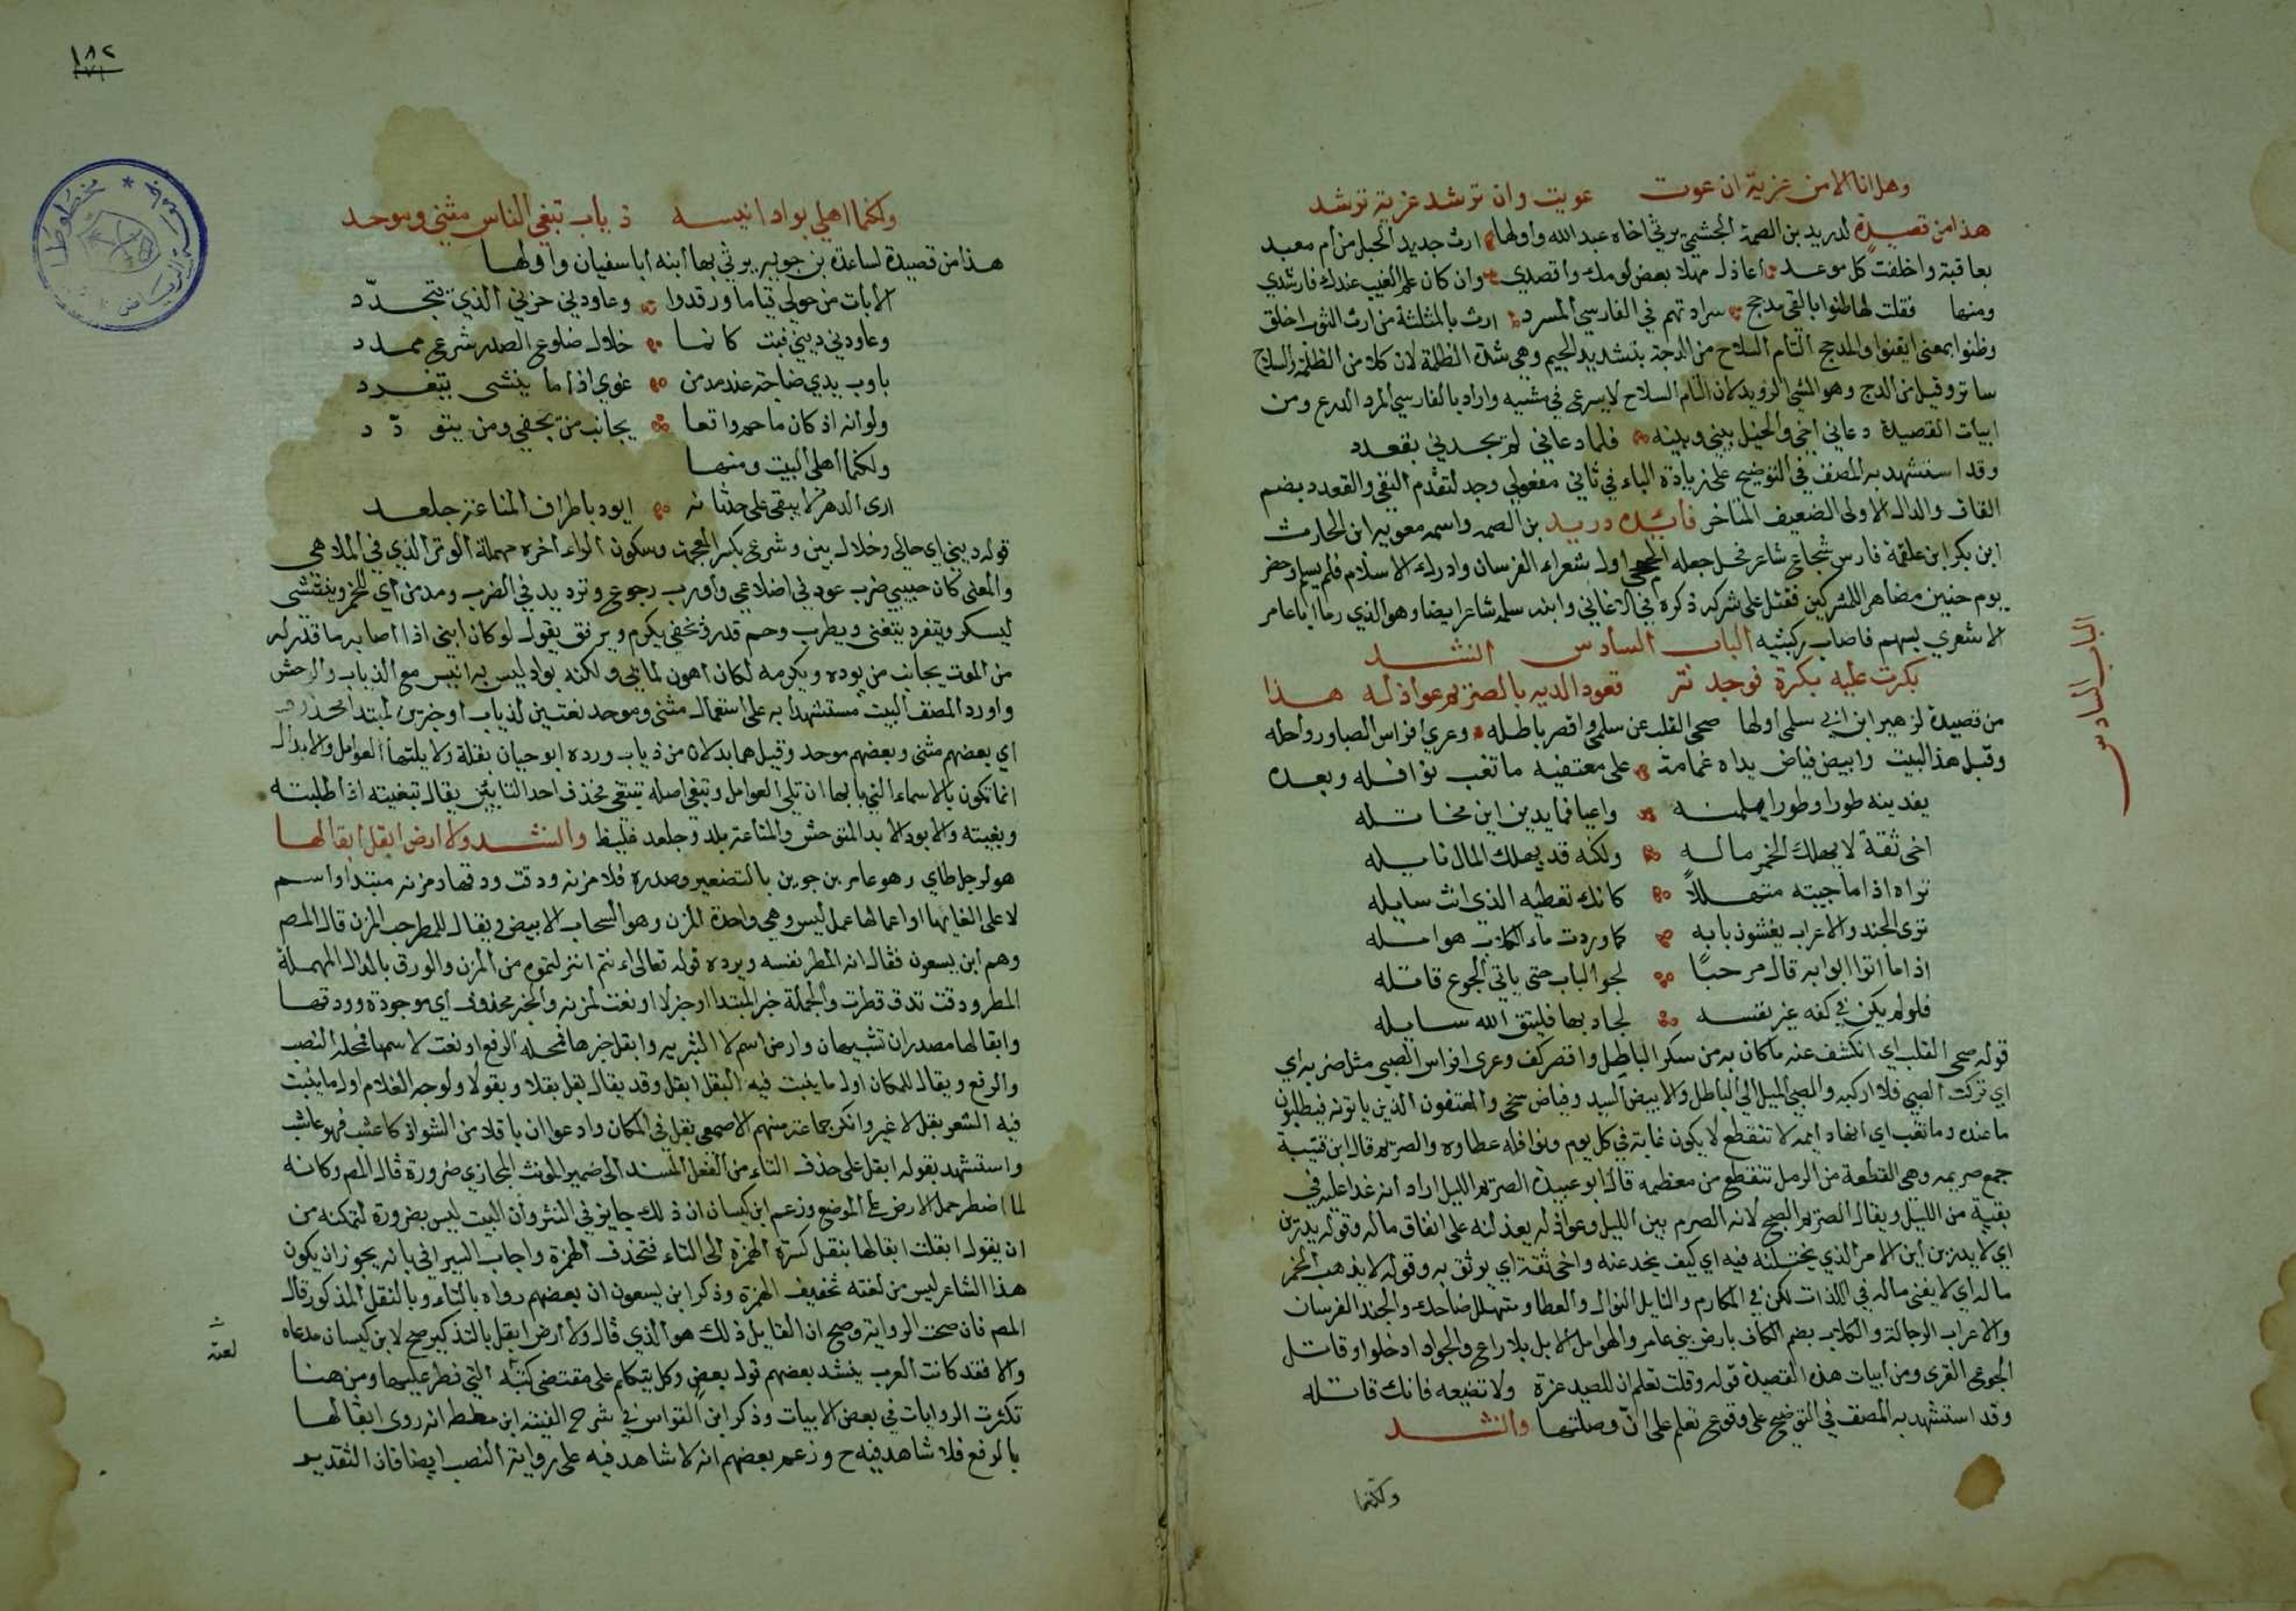 وهل انا الا من غزية ان غوت غويت وان ترشد غزية نرشد
هذا من قصيدة لدريد بن الصمة الجشمي يرثي اخاه عبد الله واولها ارث جديد الحبل من أم معبد
بعاقبة واخلفت كل موعد اعاذل مهلا بعض لومك واقصدي وان كان علم الغيب عندك فارشدي
ومنها فقلت لها ظنوا بالفي مدجج سراتهم في الفارسي المسرد ارث بالمثلثة من ارث الثوب اخلق
وظنوا بمعنى ايقنوا والمدجج التام السلاح من الدجة بتشديد الجيم وهي شدة الظلمة لان كلا من الظلمة والسلاح
ساتر وقيل من الدج وهو المشي الرويد لان التام السلاح لا يسرع في مشيه واراد بالفارسي المرد الدرع ومن
ابيات القصيدة دعاني اخي والخيل بيني وبينه فلما دعاني لم يجدني بقعدد
وقد استشهد به المصنف في التوضيح على زيادة الباء في ثاني مفعولي وجد لتقدم النفي والقعدد بضم
القاف والدال الاولى الضعيف المتاخر فأئدة دريد بن الصمه واسمه معويه ابن الحارث
ابن بكر ابن علقمة فارس شجاع شاعر فحل جعله الجمحي اول شعراء الفرسان وادرك الاسلام فلم يسلم وحضر
يوم حنين مظاهرا للمشركين فقتل على شركه ذكره في الاغاني وابنه سلمه شاعر ايضا وهو الذي رما ابا عامر
الاشعري بسهم فاصاب ركبتيه الباب السادس انشد
بكرت عليه بكرة فوجدته قعودا لديه بالصريم عواذله هذا
من قصيدة لزهير ابن ابي سلمى اولها صحى القلب عن سلمى واقصر باطله وعري افراس الصبا ورواحله
وقبل هذا البيت وابيض فياض يداه غمامة على معتفيه ما تغب نوافله وبعده
يفدينه طورا وطورا يلمنه واعيا فما يدرين اين مخاتله
اخى ثقة لا يهلك الخمر ماله ولكنه قد يهلك المال نايله
تراه اذا ما جيته متهللاً كانك تعطيه الذي انت سايله
ترى الجند والاعراب يغشون بابه كما وردت ماء الكلاب هوامله
اذا ما اتوا ابوابه قال مرحبًا لجوا الباب حتى ياتي الجوع قاتله
فلو لم يكن في كفه غير نفسه لجاد بها فليتق الله سايله
قوله صحى القلب اي انكشف عنه ما كان به من سكر الباطل واقصر كف وعرى افراس الصبي مثل ضربه اي
اي تركت الصبى فلا اركبه والصبى الميل الى الباطل والابيض السيد وفياض سخى والمعتفون الذين ياتونه فيطلبون
ما عنده وما تغب اي انها دايمه لا تنقطع لا يكون غابة في كل يوم ونوافله عطاوه والصريم قال ابن قتيبة
جمع صريمه وهي القطعة من الرمل تنقطع من معظمه قال ابو عبيدة الصريم الليل اراد انه غدا عليه في
بقية من الليل ويقال الصريم الصبح لانه الصرم بين الليل وعواذله يعذلنه على انفاق ماله وقوله يدرين
اي لا يدرين أين الامر الذي يختلنه فيه اي كيف يخدعنه واخى ثقة اي يوثق به وقوله لا يذهب الخمر
ماله اي لا يفنى ماله في اللذات لكن في المكارم والنايل النوال والعطا ومتهلل ضاحك والجند الفرسان
والاعراب الرجالة والكلاب بضم الكاف بارض بني عامر والهوامل الابل بلا راع ولجوا ادخلوا وقاتل
الجوع القرى ومن ابيات هذه القصيدة قوله وقلت تعلم ان للصيد غرة ولا تضيعه فانك قاتله
وقد استشهد به المصنف في التوضيح على وقوع تعلم على انّ وصلتها وانشد
ولكنما
الباب السادس
١٨٢
ولكنما اهلي بواد انيسه ذياب تبغى الناس مثنى وموحد
هذا من قصيدة لساعدة بن جويير يرثي بها أبنه ابا سفيان واولها
الا بات من حولي نياما ورقدوا وعاودني حزني الذي يتجدّد
وعاودني ديني فبت كانما خلال ضلوع الصدر شرع ممدد
باوب يدي صناجة عند مدمن غوي اذا ما ينتشى يتغرد
ولو أنه اذ كان ما حم واقعا يجانب من يحفي ومن يتودّد
ولكنما أهلى البيت ومنها
ارى الدهر لا يبقى على حدثانه ابود باطراف المناعة جلعد
قوله ديني اي حالي وخلال بين وشرع بكسر المعجمة وسكون الراء اخره مهملة الوتر الذي في الملاهي
والمعنى كان حبيبي ضرب عود في اضلاعي واوب رجوع وترديد في الضرب ومدمن اي للخمر وينتشى
ليسكر ويتغرد يتغنى ويطرب وحم قدر ويحفي يكرم ويرفق يقول لو كان ابني اذا اصابه ما قدر له
من الموت يجانب من يوده ويكرمه لكان اهون لما بي ولكنه بواد ليس به انيس مع الذياب والوحش
واورد المصنف البيت مستشهدا به على استعمال مثنى وموحد نعتين لذياب او خبرين لمبتدا محذوف
اي بعضهم مثنى وبعضهم موحد وقيل هما بدلان من ذياب ورده ابو حيان بقلة ولايلتهما العوامل والابدال
انما تكون بالاسماء التي بابها ان تلى العوامل وتبغي اصله تتبغى فحذف احد التايين يقال تبغيته اذا طلبته
وبغيته والابود الابد المتوحش والمناعة بلد وجلعد غليظ وانشد ولا ارض ابقل ابقالها
هو لرجل طاي وهو عامر بن جوين بالتصغير وصدره فلا مزنه ودقت ودقها ومزنه مبتدا واسم
لا على الغايها او اعمالها عمل ليس وهي واحدة المزن وهو السحاب الابيض ويقال للمطر حب المزن قال المص
وهم أبن يسعون فقال انه المطر نفسه ويرده قوله تعالى اءنتم انزلتموه من المزن والودق بالدال المهملة
المطر ودقت تدق قطرت والجملة خبر المبتدا او خبر لا او نعت لمزنه والخبر محذوف اي موجودة وودقها
وابقالها مصدران تشبيهان وارض اسم لا التبريه وابقل خبرها فمحله الرفع او نعت لاسمها فمحله النصب
والرفع ويقال للمكان اول ما ينبت فيه البقل ابقل وقد يقال بقل بقلا وبقولا ولوجه الغلام اول ما ينبت
فيه الشعر بقل لا غير وانكر جماعة منهم الاصمعي بقل في المكان وادعوا ان باقلا من الشواذ كاعشب فهو عاشب
واستشهد بقوله ابقل على حذف التاء من الفعل المسند الى ضمير المونث المجازي ضرورة قال المص وكانه
لما اضطر حمل الارض على الموضع وزعم ابن كيسان ان ذلك جايز في النثر وأن البيت ليس بضرورة لتمكنه من
ان يقول ابقلت ابقالها بنقل كسرة الهمزة الى التاء فتحذف الهمزة واجاب السيرافي بانه يجوز ان يكون
هذا الشاعر ليس من لغته تخفيف الهمزة وذكر ابن يسعون ان بعضهم رواه بالتاء وبالنقل المذكور قال
المص فان صحت الرواية وصح ان القايل ذلك هو الذي قال ولا أرض ابقل بالتذكير صح لابن كيسان مدعاه
والا فقد كانت العرب ينشد بعضهم قول بعض وكل يتكلم على مقتضى لغته التي فطر عليها ومن هنا
تكثرت الروايات في بعض الابيات وذكر ابن القواس في شرح الفية ابن معط انه روى ابقالها
بالرفع فلا شاهد فيه ح وزعم بعضهم انه لا شاهد فيه على رواية النصب ايضا فان التقدير
لغته